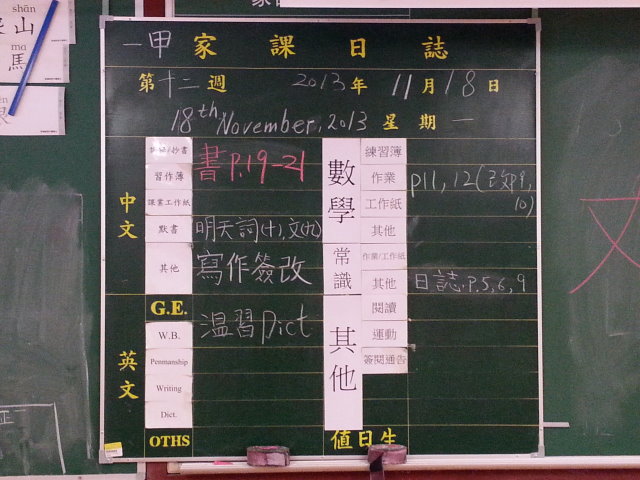 shān
山
mǎ
馬
一甲 家課日誌
第十二週 2013年 11月18日
18th November, 2013 星期一
中文
書 p.19-21
習作簿
課業工作紙
默書 明天詞(十),文(九)
其他 寫作簽改
英文
G.E. 溫習 Dict
W.B.
Penmanship
Writing
Dict.
OTHS
數學
練習簿
作業 p11, 12(已改p9, 10)
工作紙
其他
常識
作業/工作紙
其他 日誌.P.5,6,9
其他
閱讀
運動
簽閱通告
值日生